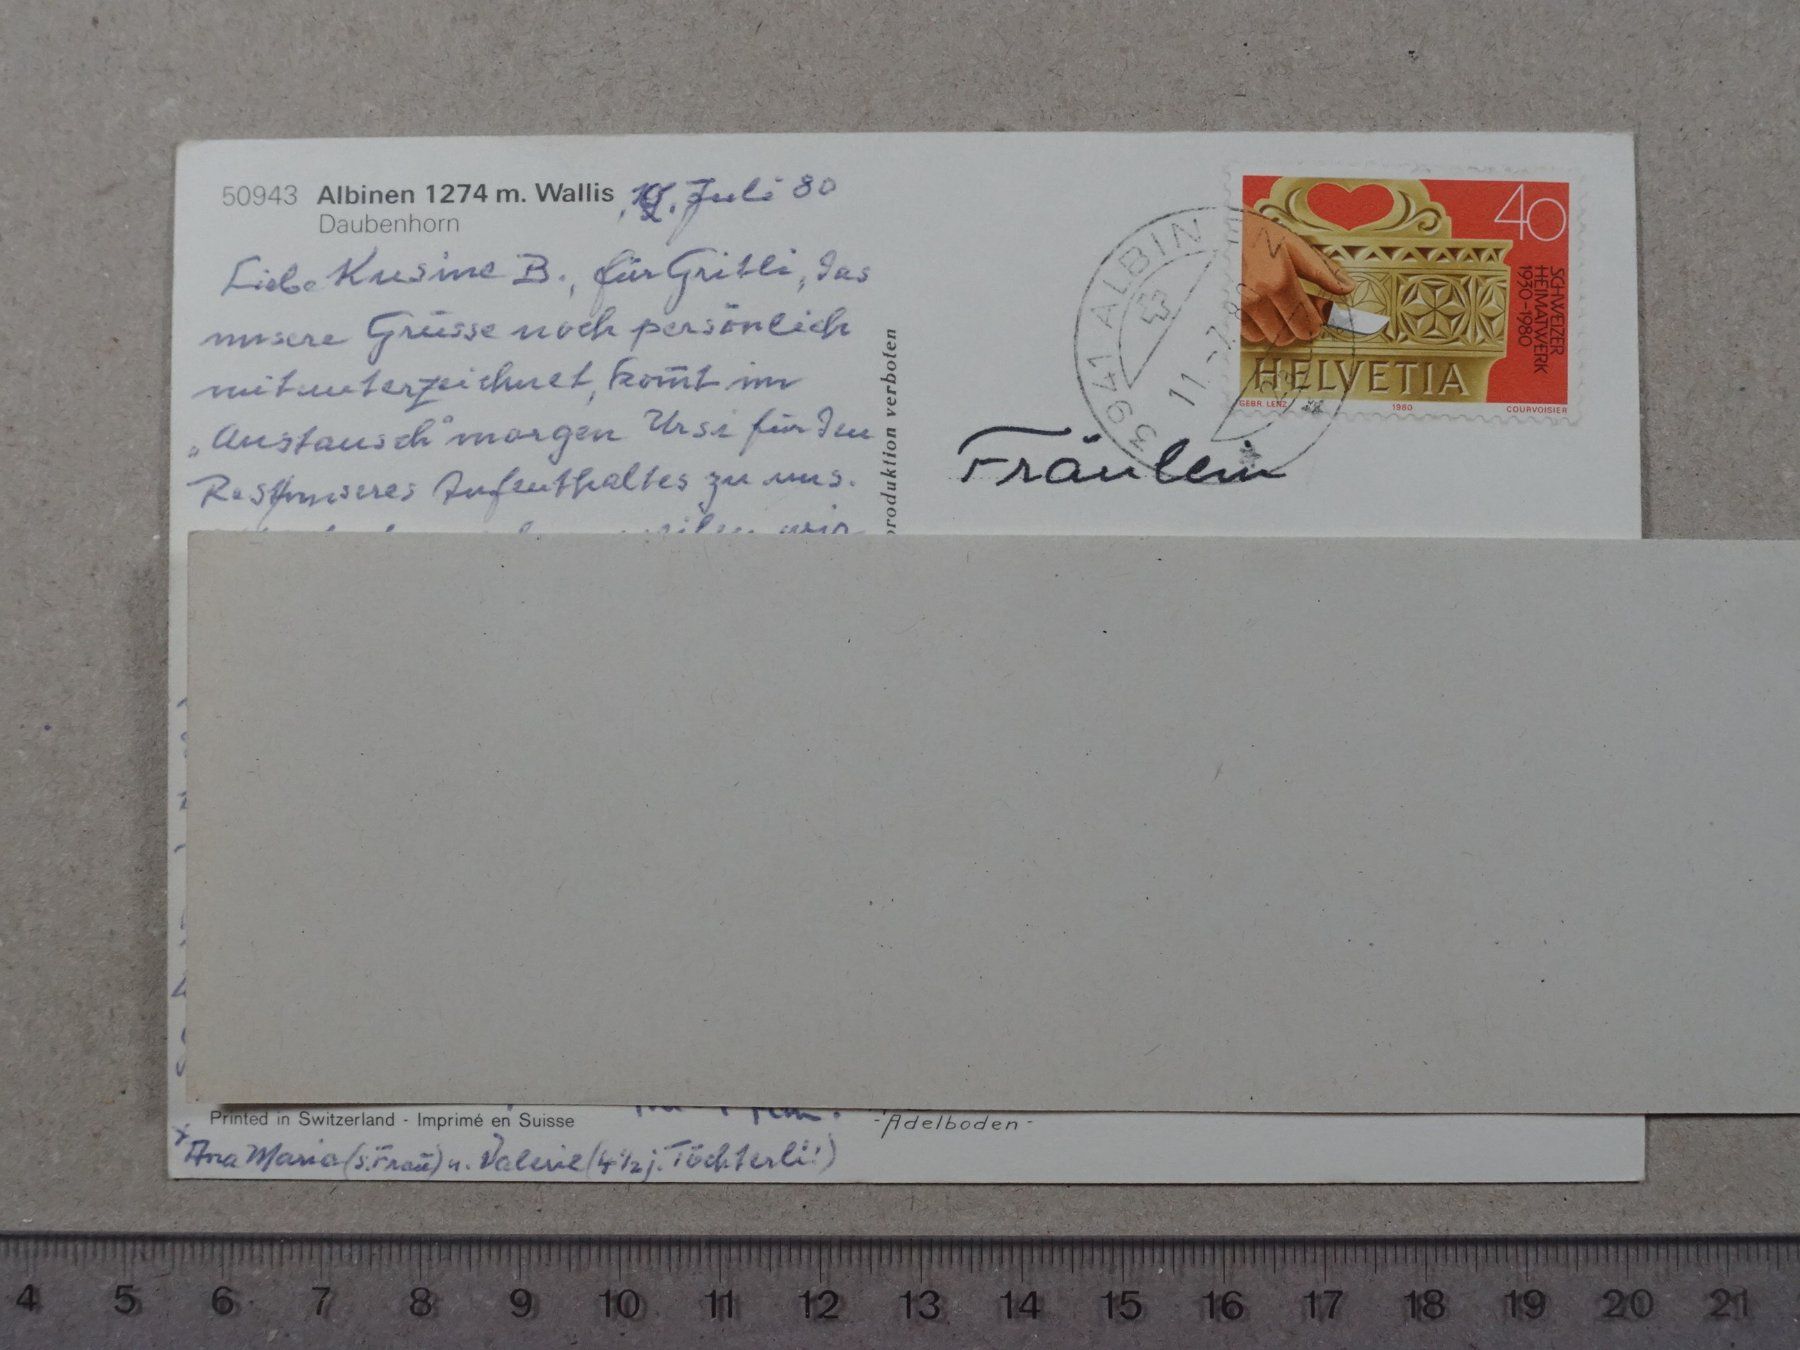 50943 Albinen 1274 m. Wallis
Daubenhorn
Juli 80
Liebe Kusine B., für Gritli, das
unsere Grüsse noch persönlich
mitunterzeichnet, kom̄t im
„Austausch" morgen Ursi für den
Rest unseres Aufenthaltes zu uns.
wir
produktion verboten
3941 ALBINEN
11.-7.80
40
SCHWEIZER
HEIMATWERK
1930-1980
HELVETIA
GEBR. LENZ 1980 COURVOISIER
Fräulein
Printed in Switzerland - Imprimé en Suisse
-Adelboden-
Ana Maria (s. Frau) u. Valerie (4½ j. Töchterli!)
4 5 6 7 8 9 10 11 12 13 14 15 16 17 18 19 20 21